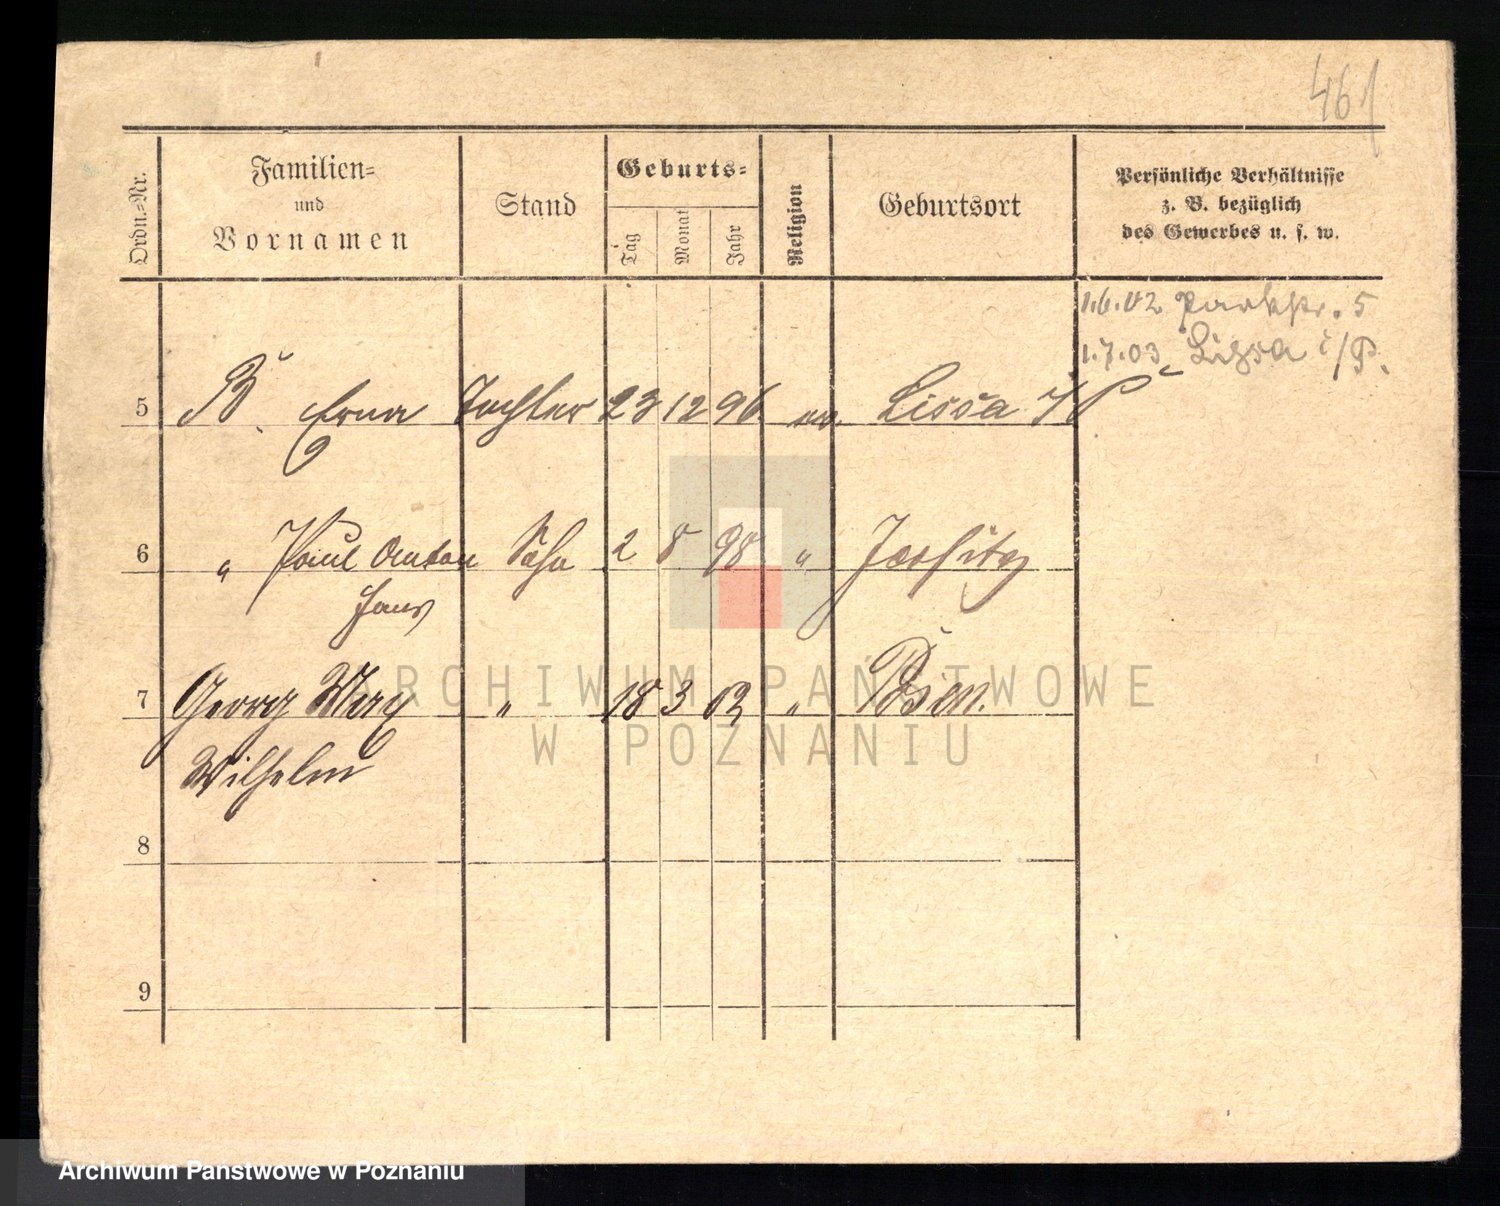 461
Ordn.-Nr.
Familien-
und
Vornamen
Stand
Geburts-
Tag
Monat
Jahr
Religion
Geburtsort
Persönliche Verhältnisse
z. B. bezüglich
des Gewerbes u. s. w.
1.6.02 Parkstr. 5
1.7.03 Lissa i/P.
5 B. Erna Tochter 23 12 96. ev. Lissa i/P
6 " Paul Anton Sohn 2 8 98 " Jersitz
Hans
7 Georg Max " 18 3 02 " Posen.
Wilhelm
8
9
ARCHIWUM PAŃSTWOWE
W POZNANIU
Archiwum Państwowe w Poznaniu